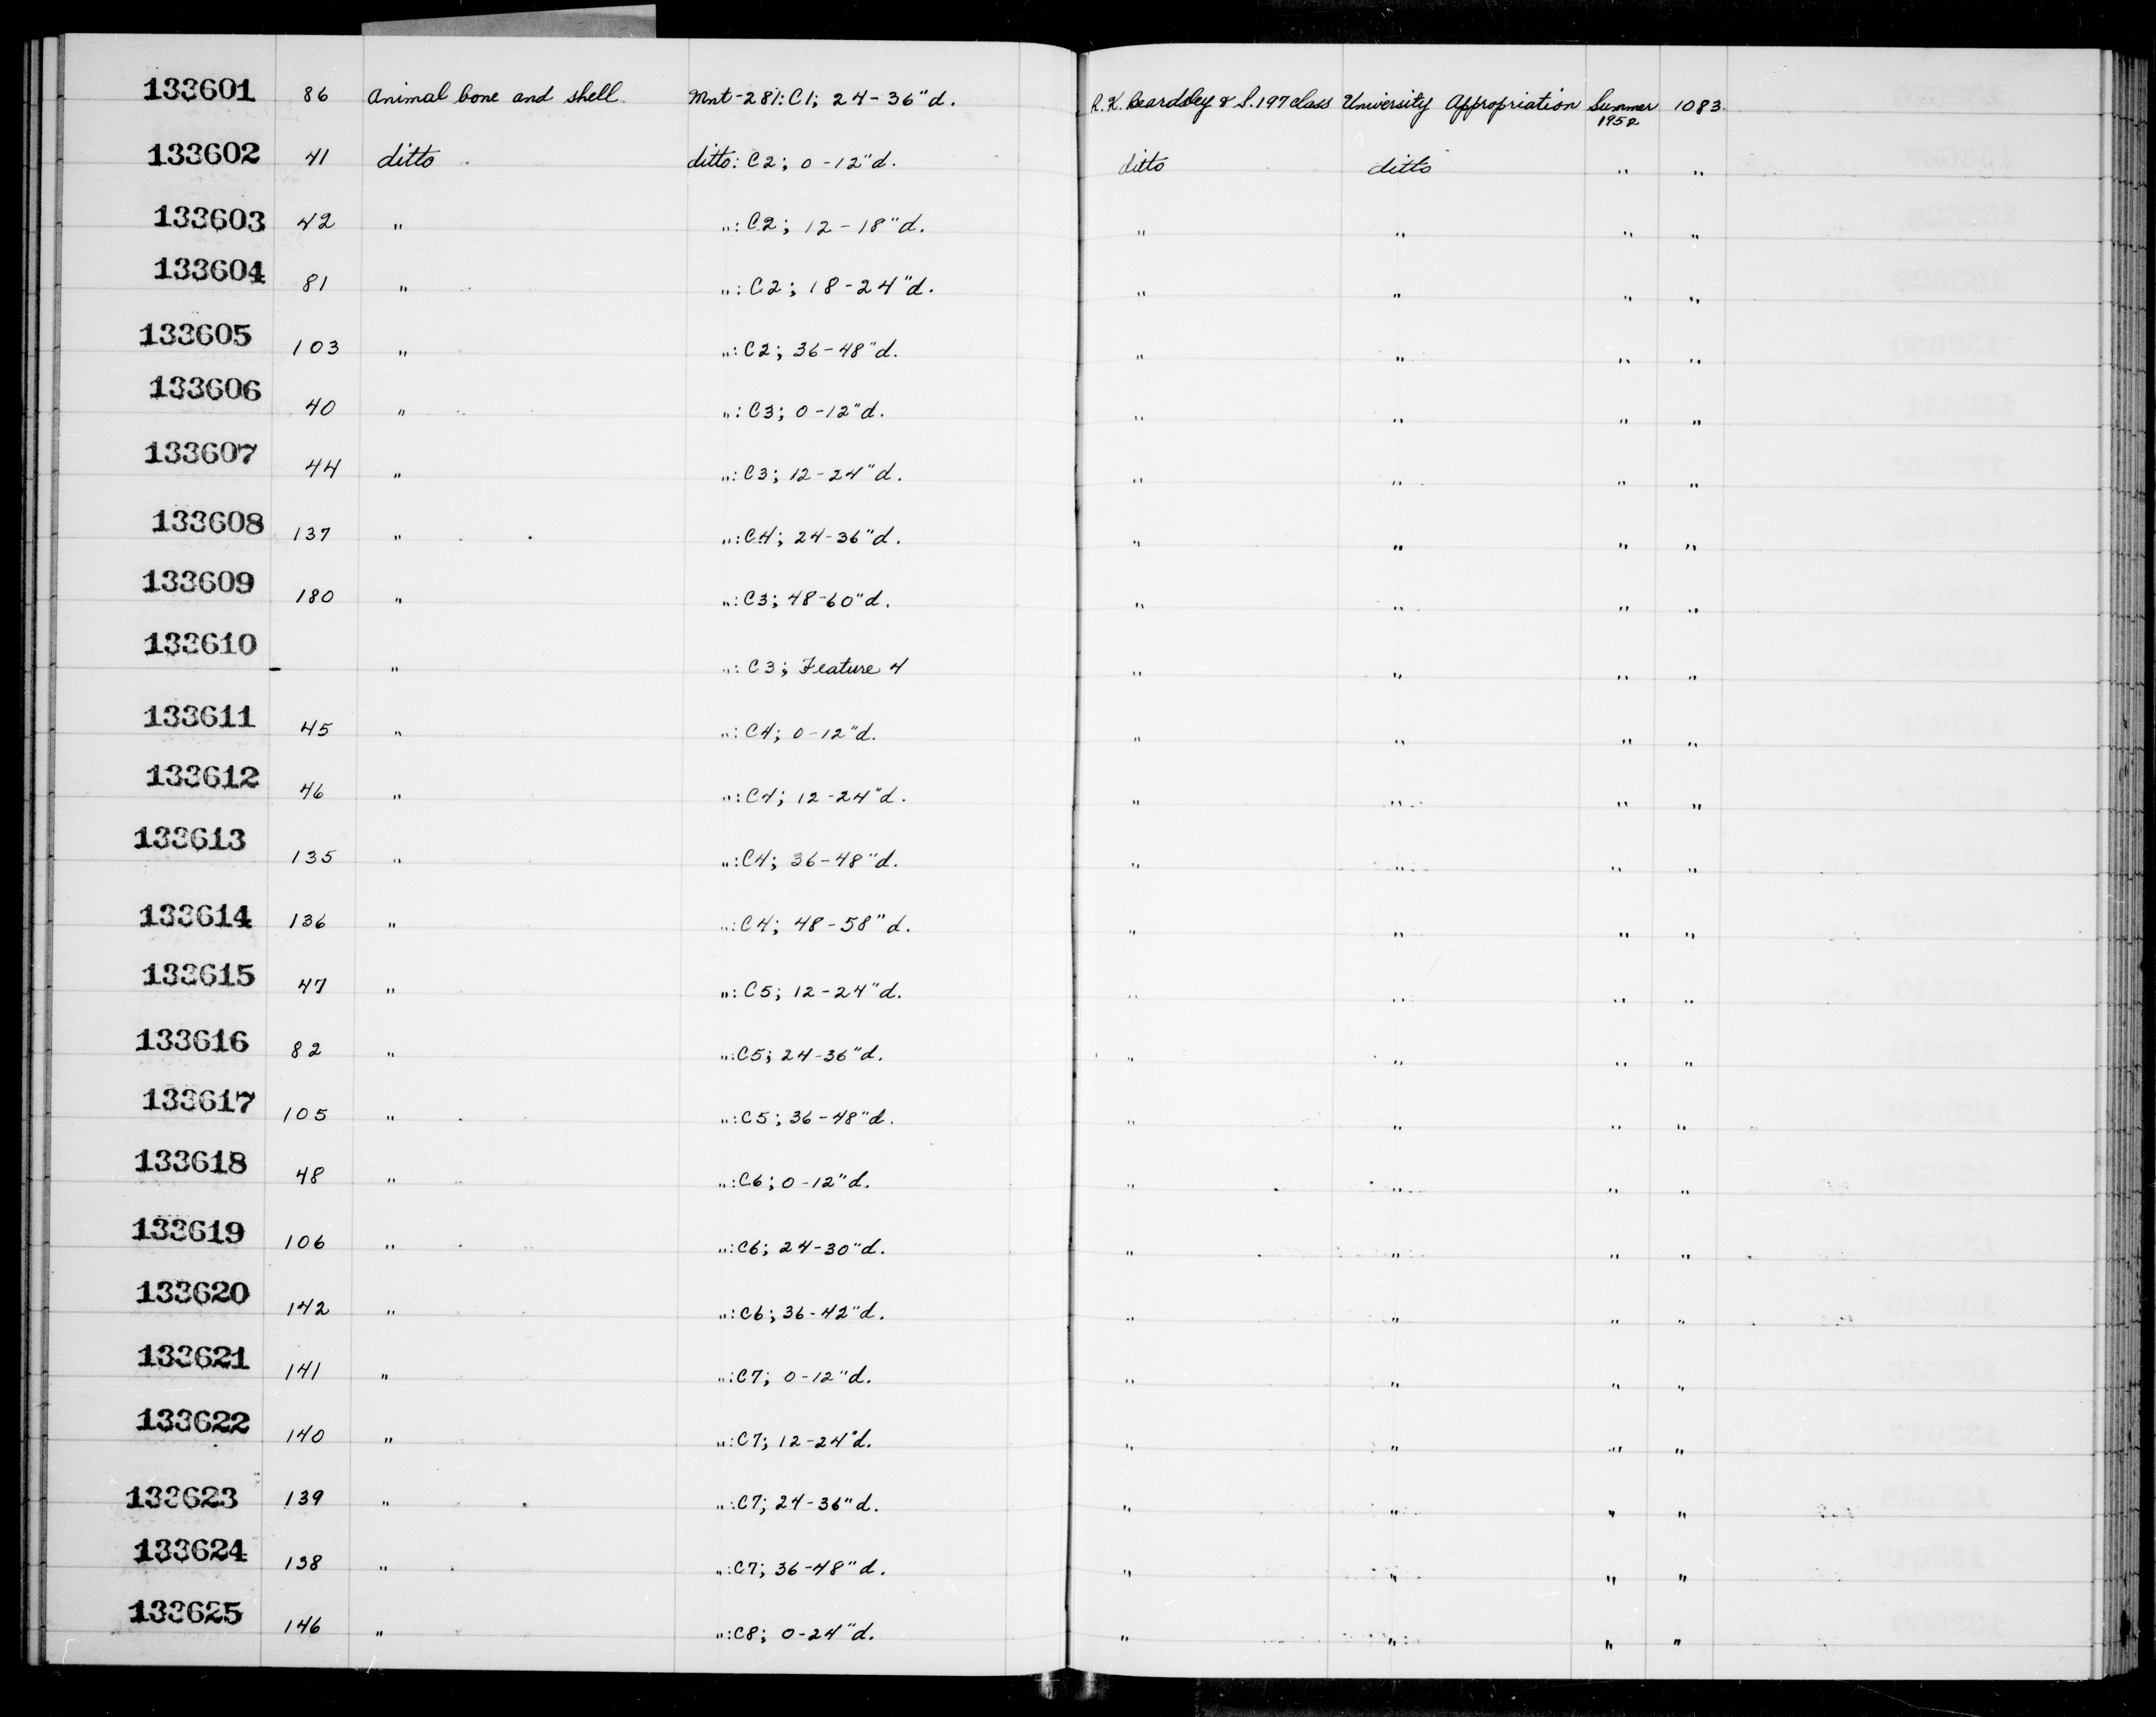 133601 86 Animal bone and shell. Mnt-281: C1; 24-36"d. R.K. Beardsley & S.197 class University Appropriation Summer 1952 1083.
133602 41 ditto ditto: C2; 0-12"d. ditto ditto " "
133603 42 " ": C2; 12-18"d. " " " "
133604 81 " ": C2; 18-24"d. " " " "
133605 103 " ": C2; 36-48"d. " " " "
133606 40 " ": C3; 0-12"d. " " " "
133607 44 " ": C3; 12-24"d. " " " "
133608 137 " ": C4; 24-36"d. " " " "
133609 180 " ": C3; 48-60"d. " " " "
133610 - " ": C3; Feature 4 " " " "
133611 45 " ": C4; 0-12"d. " " " "
133612 46 " ": C4; 12-24"d. " " " "
133613 135 " ": C4; 36-48"d. " " " "
133614 136 " ": C4; 48-58"d. " " " "
133615 47 " ": C5; 12-24"d. " " " "
133616 82 " ": C5; 24-36"d. " " " "
133617 105 " ": C5; 36-48"d. " " " "
133618 48 " ": C6; 0-12"d. " " " "
133619 106 " ": C6; 24-30"d. " " " "
133620 142 " ": C6; 36-42"d. " " " "
133621 141 " ": C7; 0-12"d. " " " "
133622 140 " ": C7; 12-24"d. " " " "
133623 139 " ": C7; 24-36"d. " " " "
133624 138 " ": C7; 36-48"d. " " " "
133625 146 " ": C8; 0-24"d. " " " "